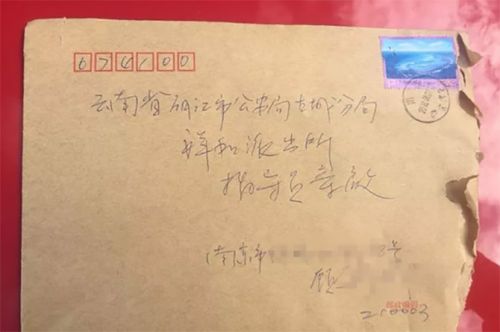 674100
云南省丽江市公安局古城分局
祥和派出所
指导员亲启
南京市
2号
顾
210003